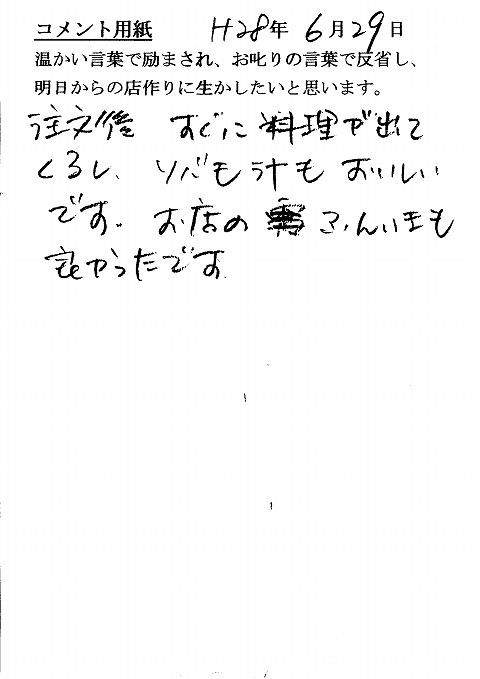 コメント用紙 H28年 6月29日
温かい言葉で励まされ、お叱りの言葉で反省し、
明日からの店作りに生かしたいと思います。
注文後 すぐに料理が出て
くるし、ソバも汁もおいしい
です。お店の ふんいきも
良かったです